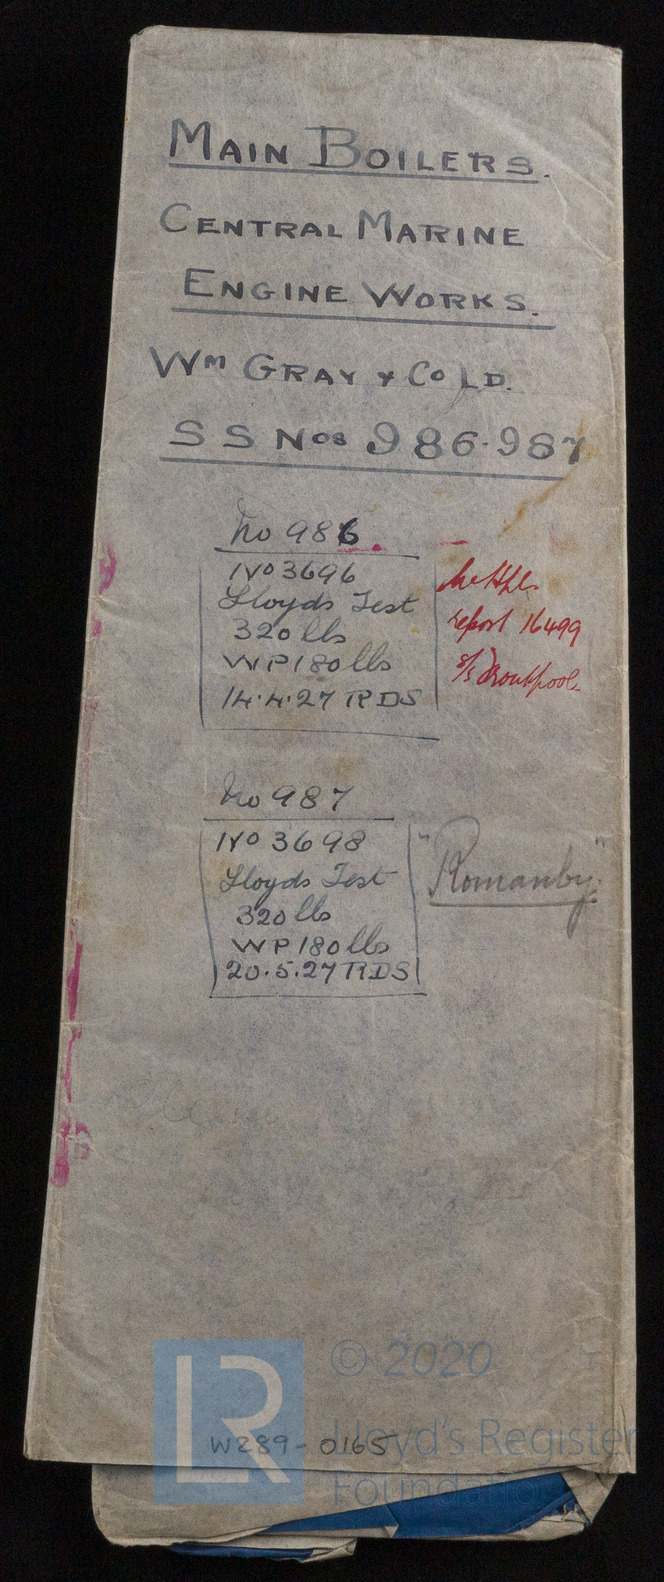 MAIN BOILERS.
CENTRAL MARINE
ENGINE WORKS.
Wm GRAY & Co LD.
S S Nos 986-987
No 986.
No 3696
Lloyds Test
320 lbs
WP 180 lbs
14.4.27 RDS
report 16499
s/s
No 987
No 3698
Lloyds Test
320 lbs
WP 180 lbs
20.5.27 RDS
"Romanby"
LR
© 2020
Lloyd's Register
Foundation
W289-0165